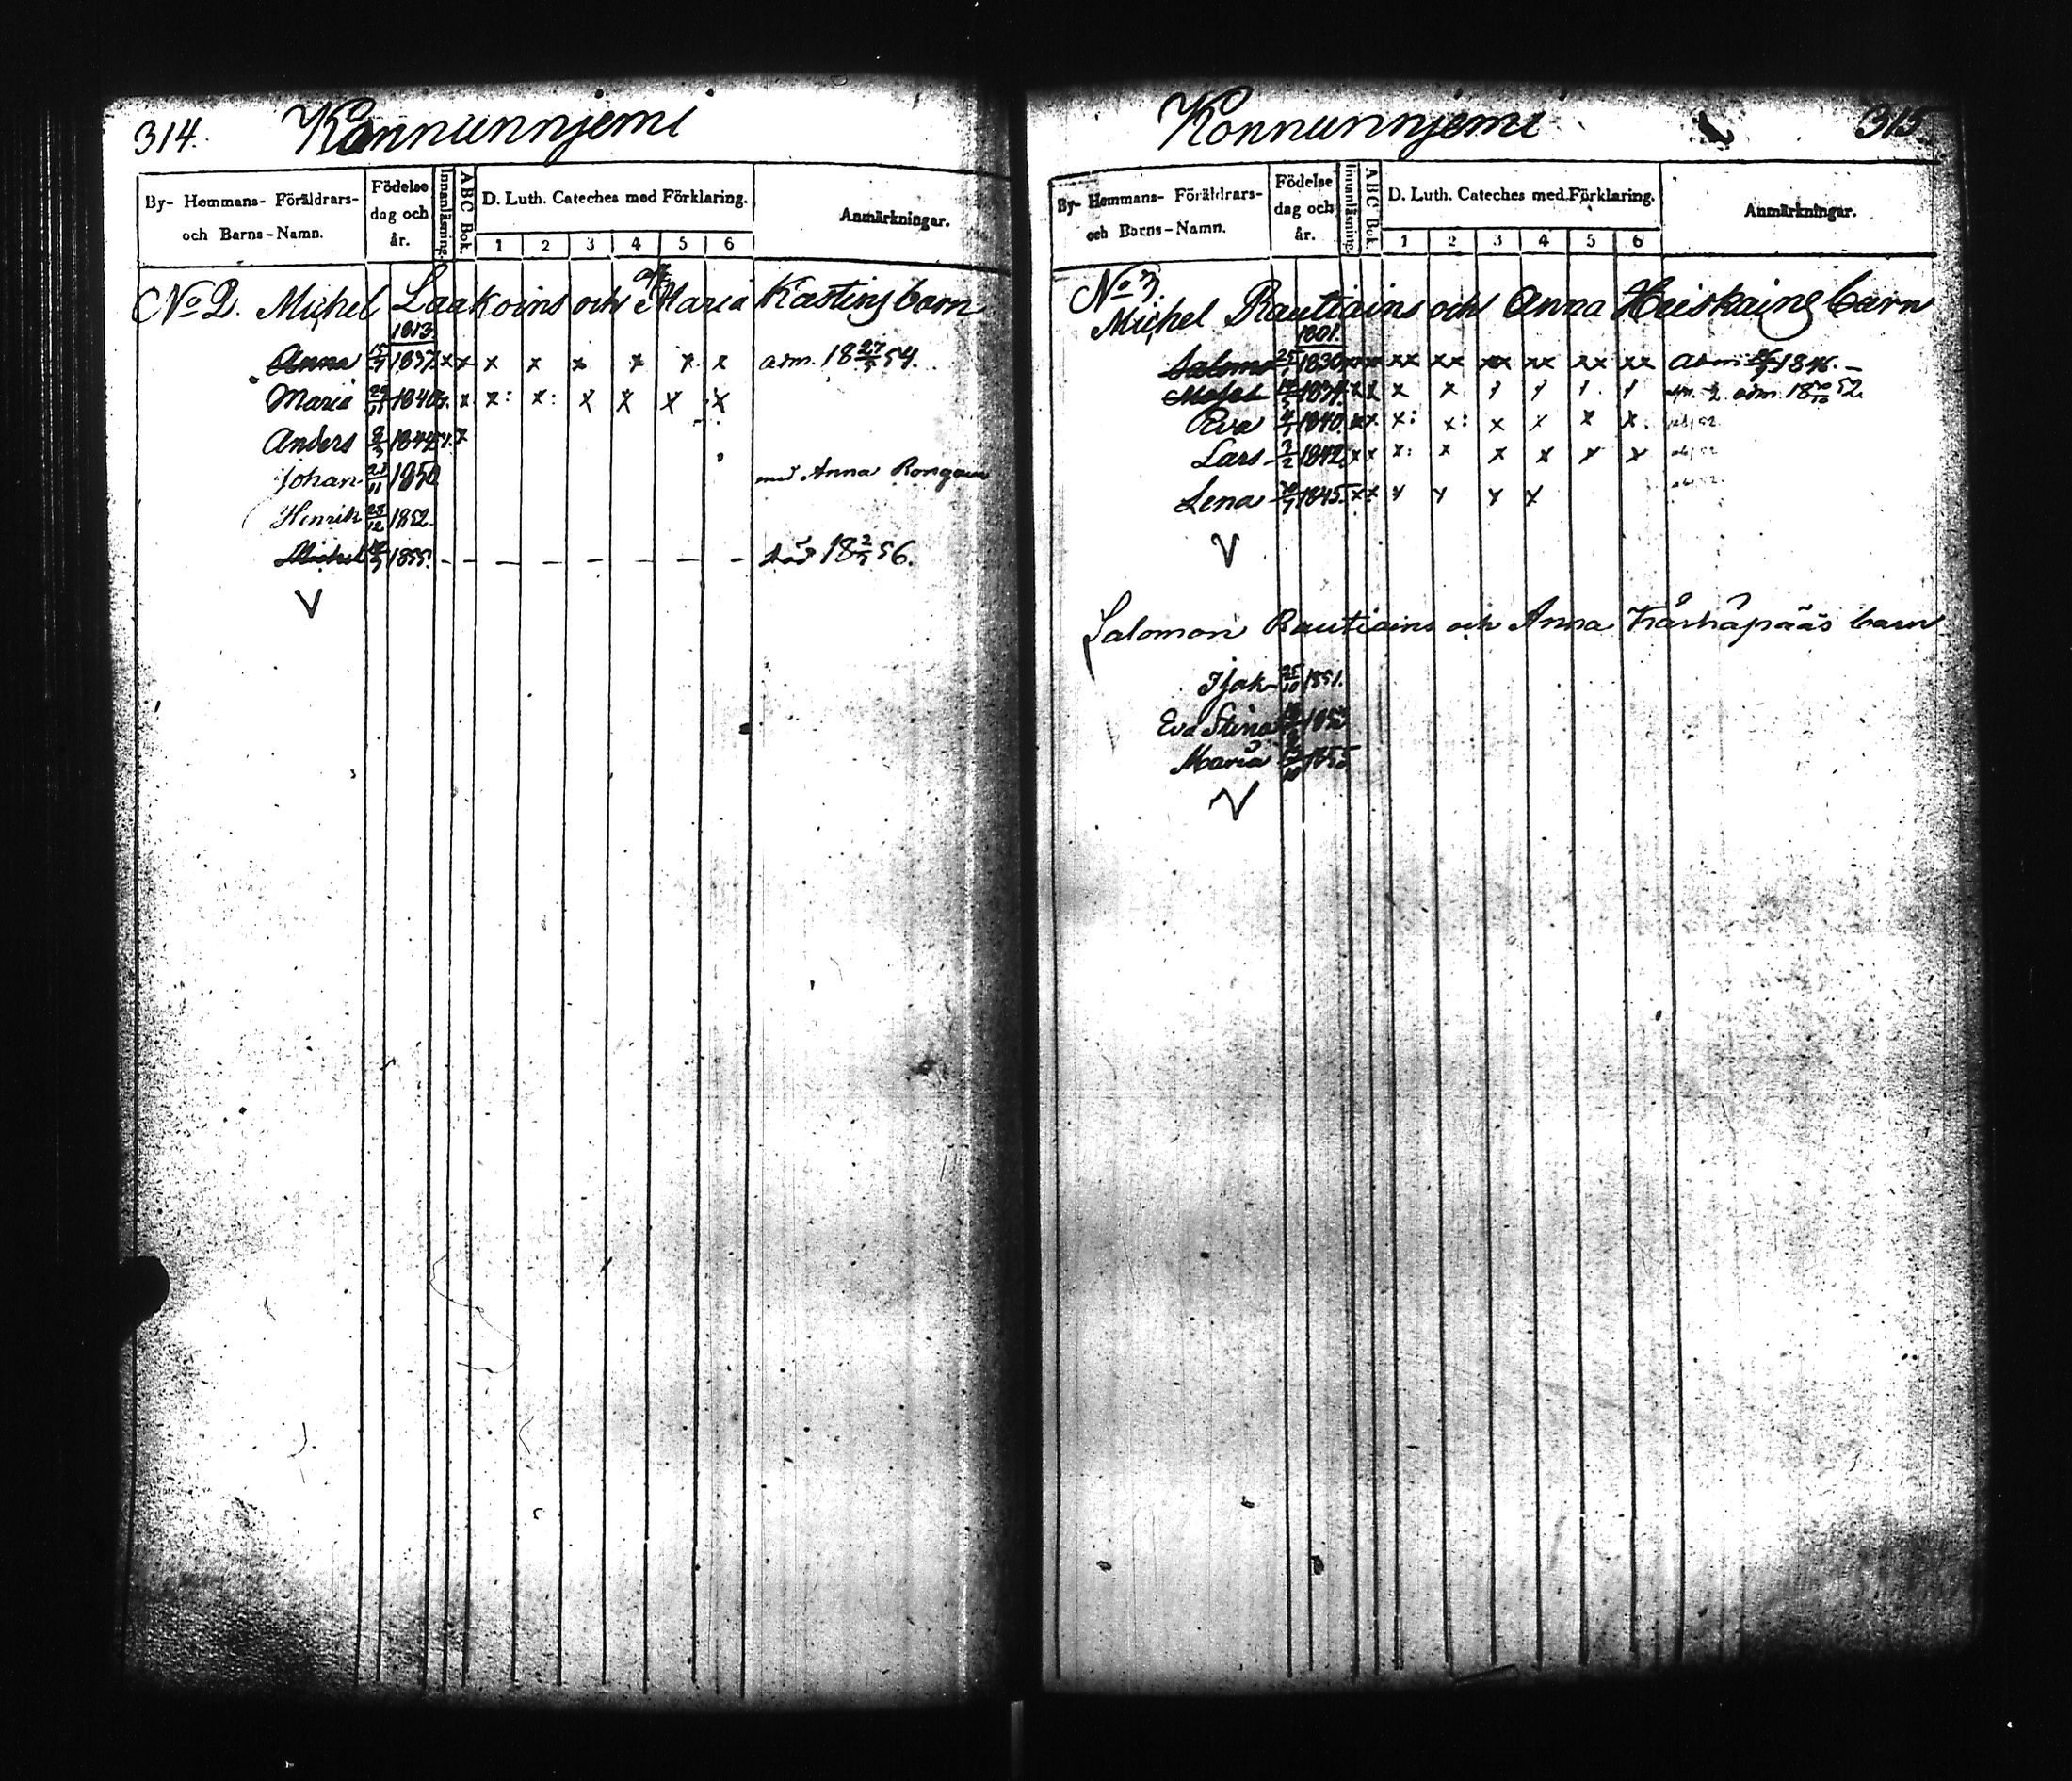 314. Konnunnjemi
By- Hemmans- Föräldrars- och Barns-Namn.
Födelse dag och år.
Innanläsning.
A B C Bok.
D. Luth. Cateches med Förklaring.
1 2 3 4 5 6
Anmärkningar.
No 2. Michel Laakoins och Maria Kastins barn
1813
Anna 1837. x x x x x x x x adm. 18 27/5 54.
Maria 1840 x x: x: x x x x
Anders 1844
Johan 21/11 1850 med Anna Rongain
Henrik 25/12 1852.
Michel 1855. – – – – – – – död 18 2/5 56.
V
Konnunnjemi 315
By- Hemmans- Föräldrars- och Barns-Namn.
Födelse dag och år.
Innanläsning.
A B C Bok.
D. Luth. Cateches med Förklaring.
1 2 3 4 5 6
Anmärkningar.
No 3.
Michel Rautiains och Anna Heiskains barn
1801.
Salomo 1830 xx xx xx xx xx xx xx xx adm 1846. –
1834. x x x x adm. 18 52.
Eva 1840. x x x: x: x x x x.
Lars 3/2 1842. x x x: x x x x x
Lena 1845. x x x x x x
V
Salomon Rautiains och Anna Kårhåpääs barn
Isak 25/10 1851.
Eva Stina
Maria
V